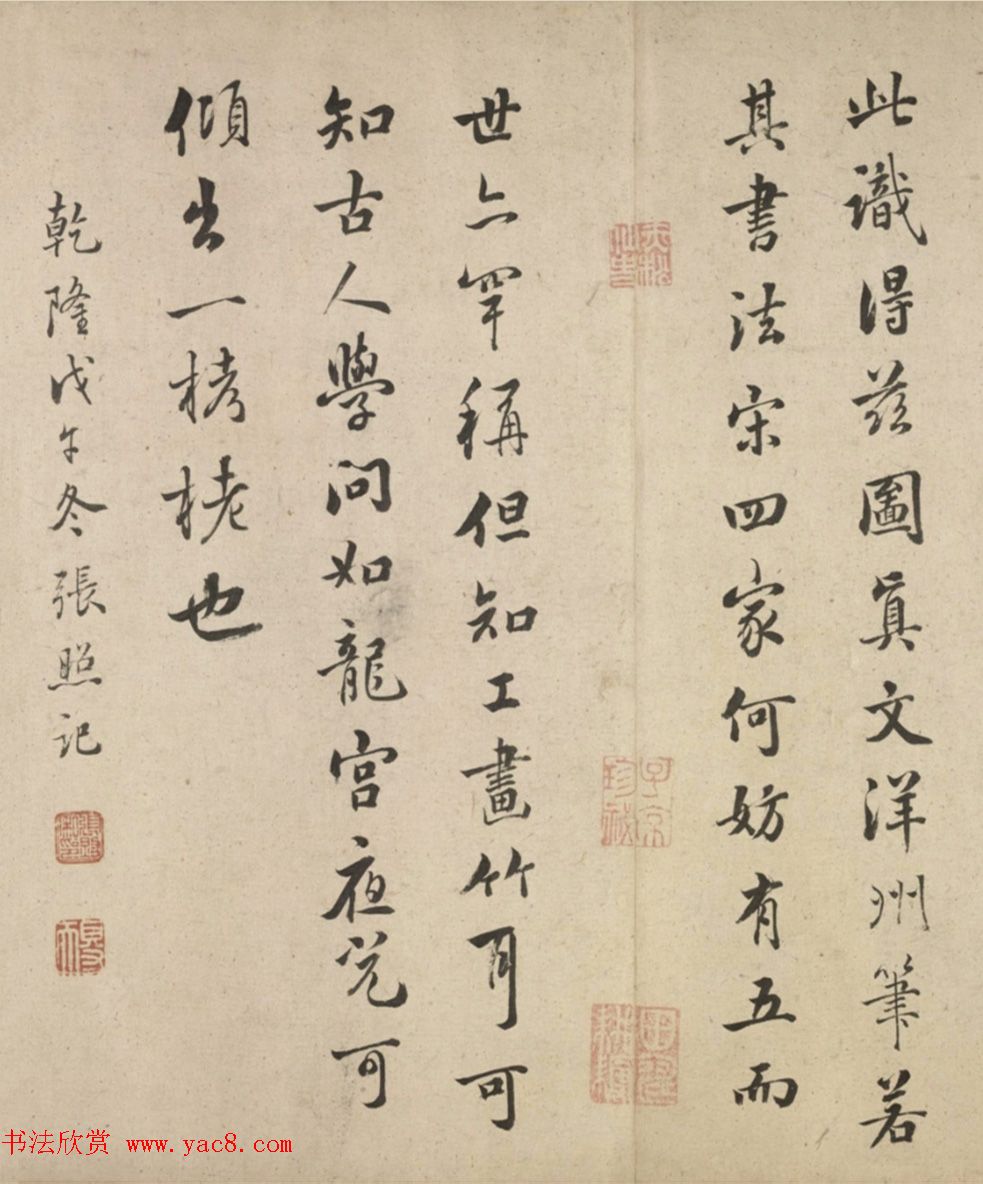 此識得茲圖真文洋州筆若
其書法宋四家何妨有五而
世亦罕稱但知工畫竹耳可
知古人學問如龍宮夜光可
傾出一栲栳也
乾隆戊午冬張照記
子京
珍祕
书法欣赏 www.yac8.com